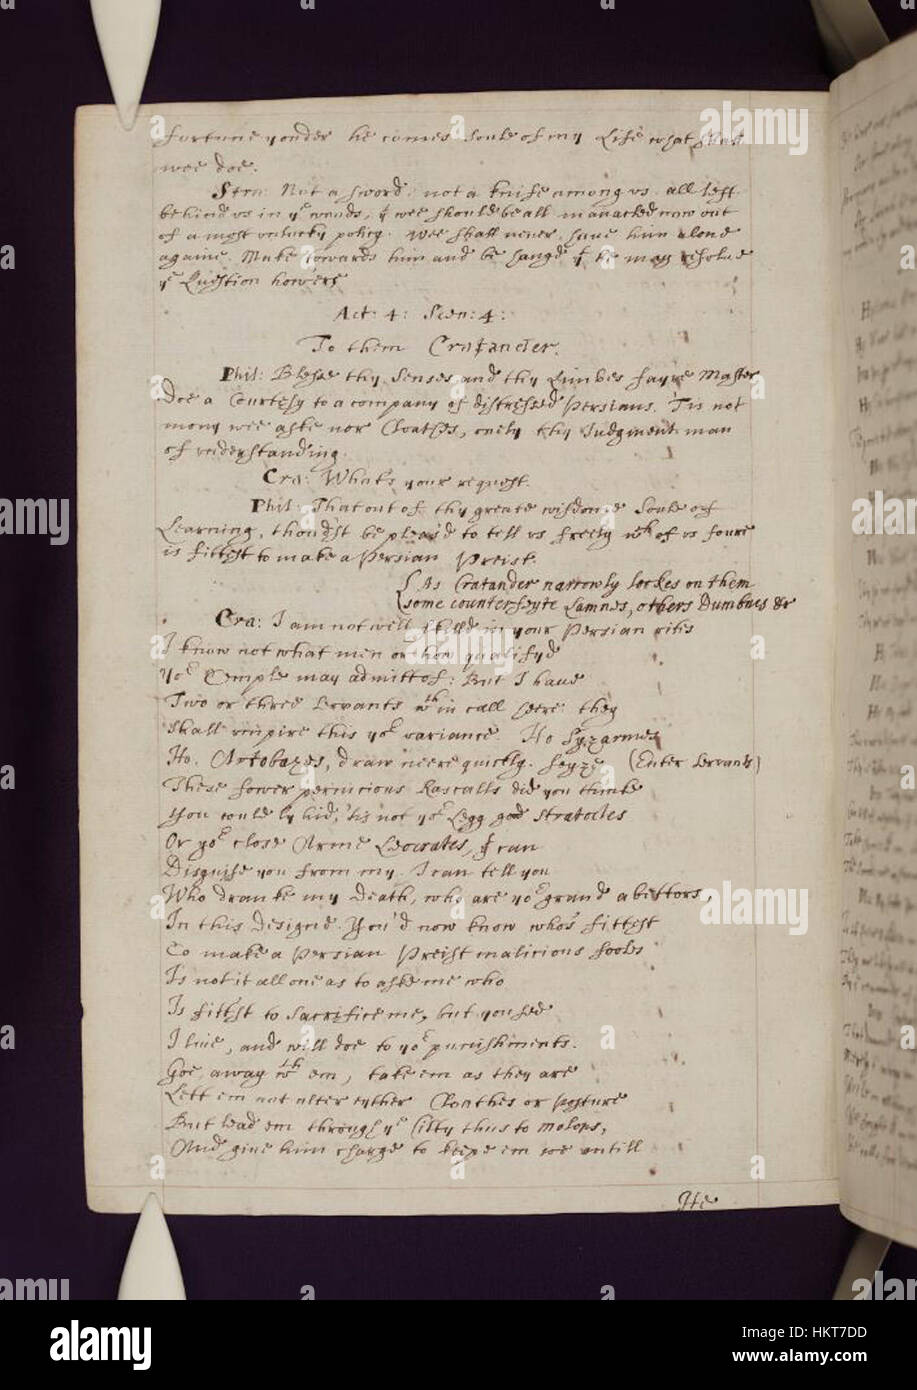 fortune yonder he comes soule of my Life what shall
wee doe.
Stra: Not a sword, not a knife among vs. all left
behind vs in yͤ woods, yͭ wee should be all manacled now out
of a most vnlucky policy. Wee shall never have him alone
againe. Make towards him and be hang'd yͭ he may resolue
yͤ Question
Act: 4: Scen: 4:
To them Cratander.
Phil: Blesse thy Senses and thy Limbes fayre Master
Doe a Courtesy to a company of distressed Persians. Tis not
mony wee aske nor Cloathes, onely thy Judgment man
of vnderstanding.
Cra: What's your request.
Phil: That out of thy greate wisdome Soule of
Learning, thoust be pleas'd to tell vs freely wͨͪ of vs foure
is fittest to make a Persian Preist.
As Cratander narrowly lookes on them
some counterfeyte Lamnes, others Dumbnes &c
Cra: I am not well skilld in your Persian rites
I know not what men or how qualifyd
yoͬ Temple may admitt of: But I haue
Two or three servants wͭͪin call heere they
shall vmpire this yoͬ variance. Ho
Ho, Artobazes, draw neere quickly. seyze (Enter servants)
These fower pernicious Rascalls did you thinke
You could ly hid, 'tis not yoͬ Legg good Stratocles
Or yoͬ close Arme Leocrates, yͭ can
Disguise you from my. I can tell you
Who dranke my Death, who are yoͬ grand abettors,
In this Designe. You'd now know who's fittest
To make a Persian Preist malicious fooles
Is not it all one as to aske me who
Is fittest to Sacrifice me, but you see
I liue, and will doe to yoͬ punishments.
Goe, away wͭͪ em, take em as they are
Lett em not alter eyther Cloathes or posture
But lead em through yͤ Citty thus to Molops,
And giue him charge to keepe em soe vntill
He
alamy
Image ID: HKT7DD
www.alamy.com